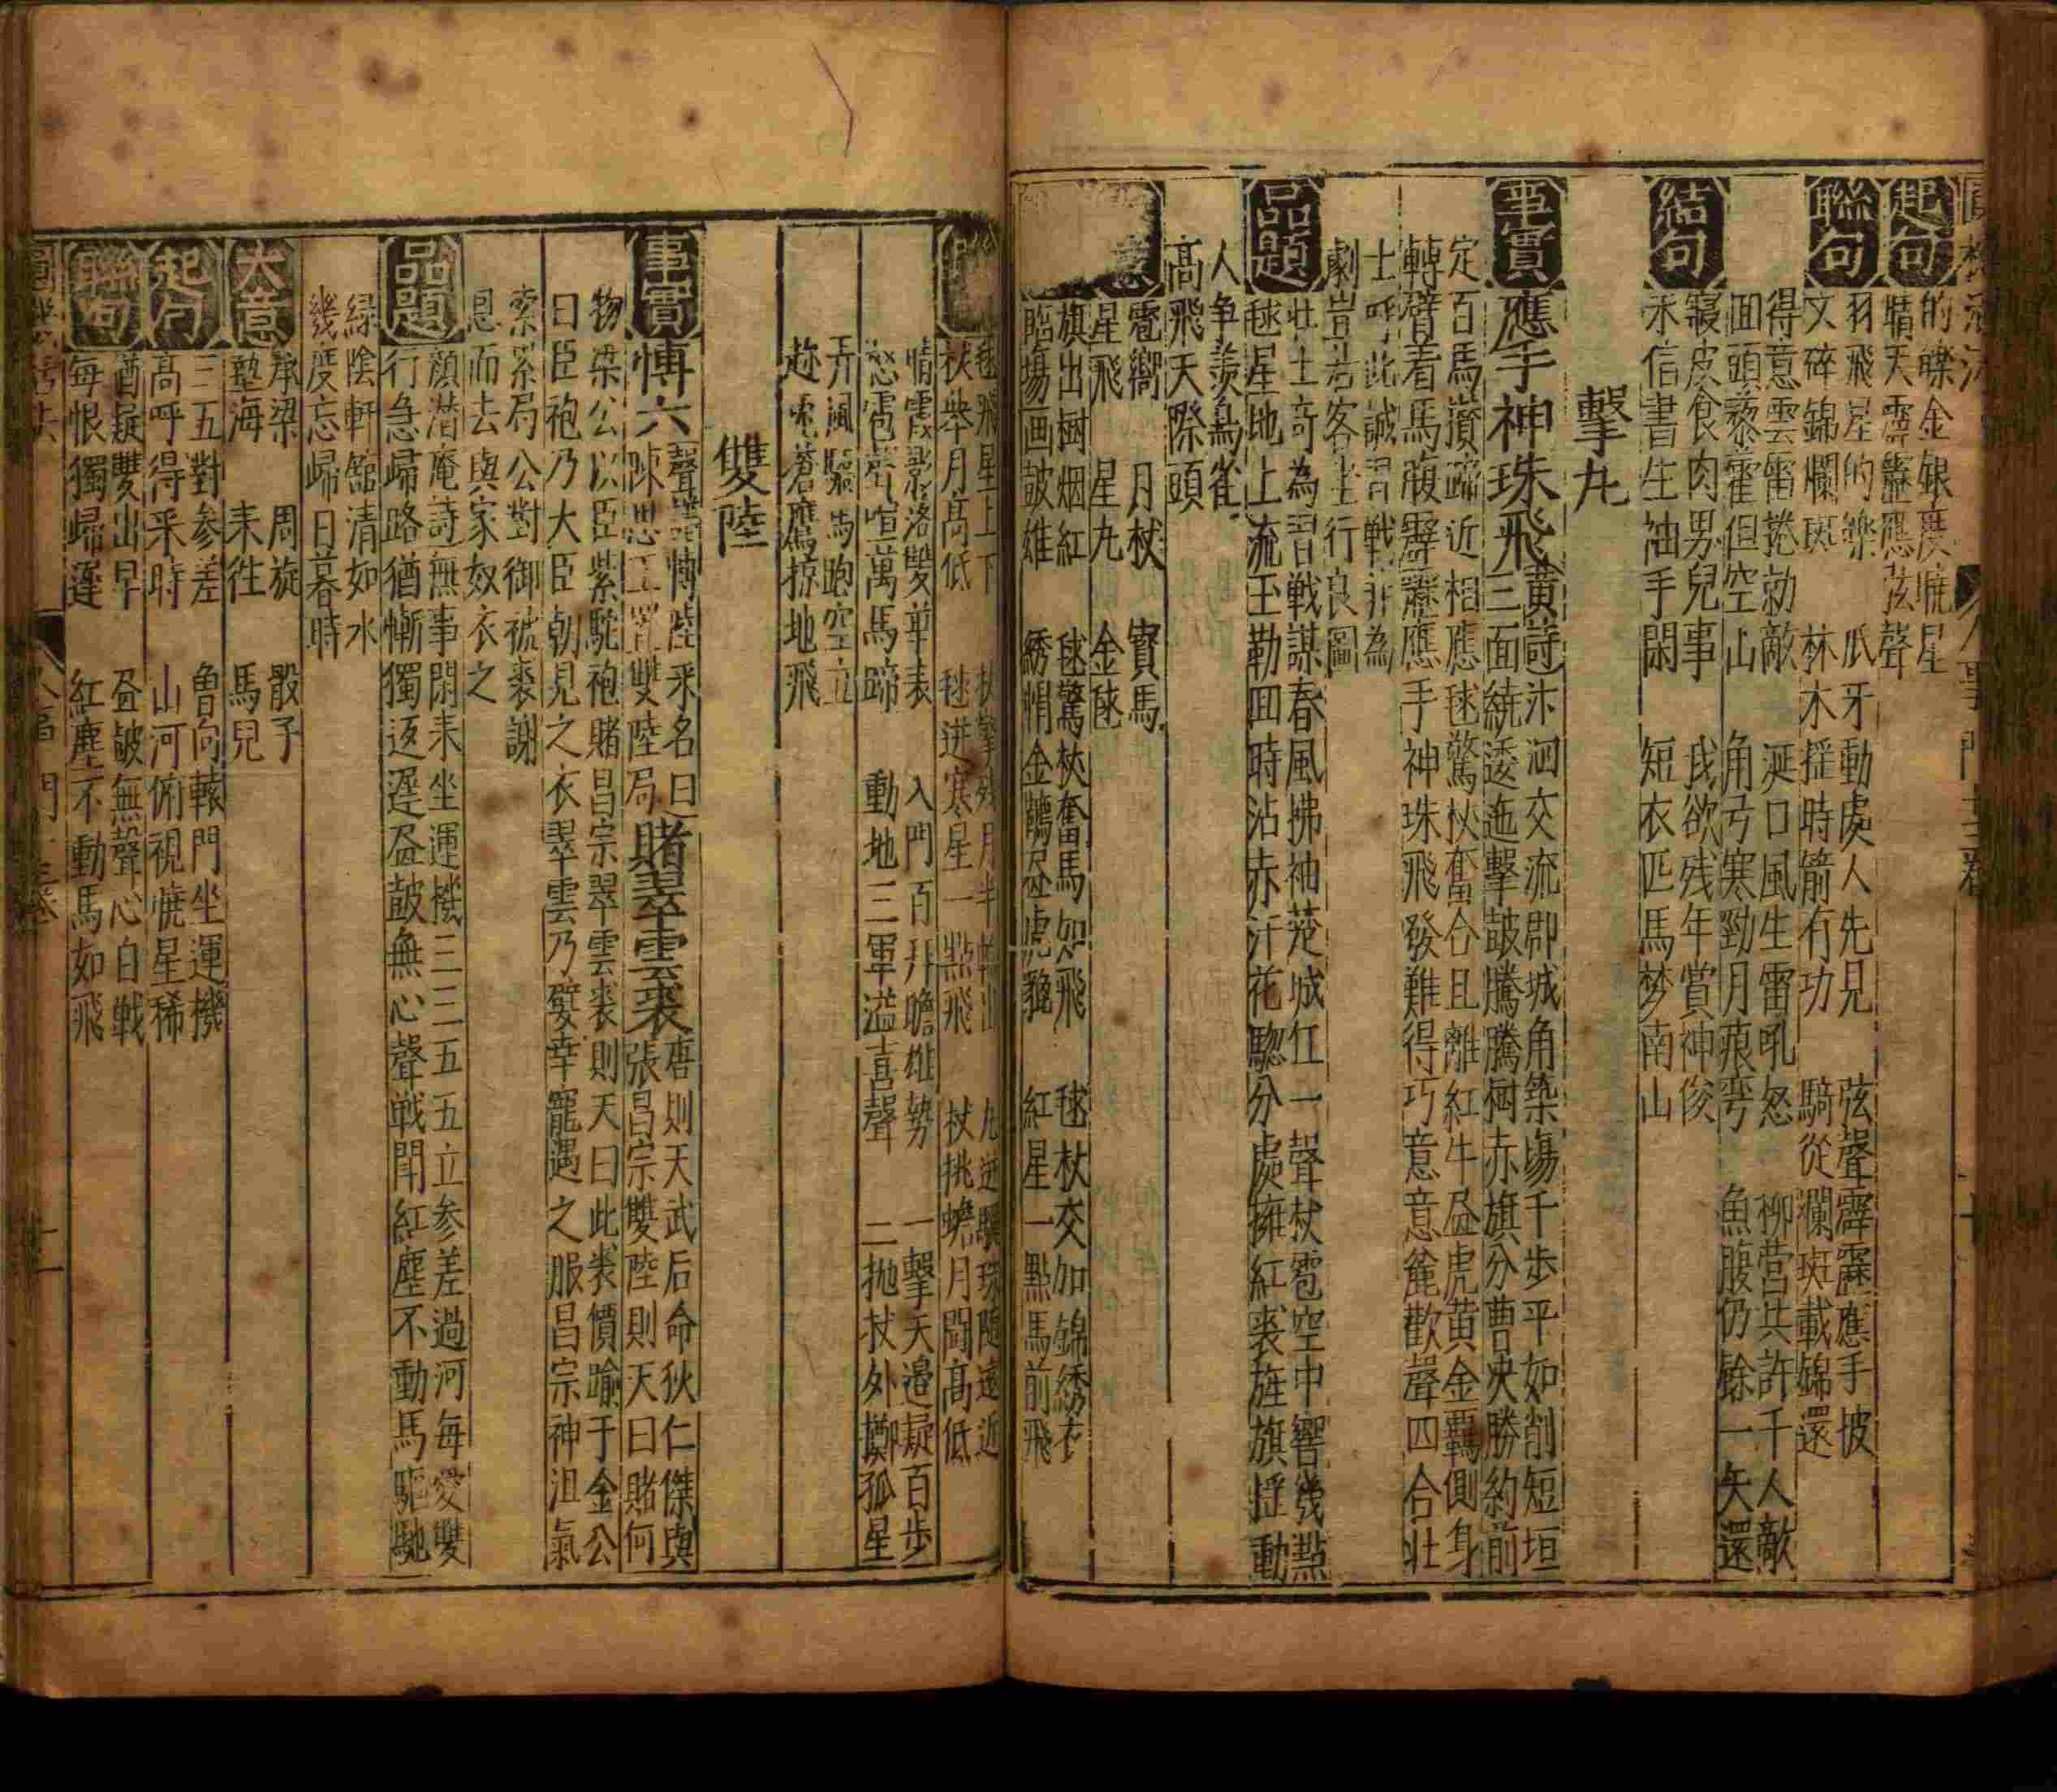 起句
的皪金銀度曉星
晴天霹靂應弦聲
聯句
羽飛星的皪 爪牙動處人先見 弦聲霹靂應手披
文碎錦斕斑 林木揺時箭有功 騎從斕斑載錦還
得意雲雷捲勍敵 涎口風生雷吼怒 柳营共許千人敵
面頭藜藿但空山 角弓寒勁月痕弯 魚腹仍餘一矢還
寢皮食肉男兒事 我欲残年賞神俊
結句
未信書生袖手閑 短衣匹馬梦南山
擊丸
事實
應手神珠飛
黄詩汴泗交流郡城角築塲千步平如削短垣
三面繞逶迤擊皷騰騰樹赤旗分曹决勝約前
定百馬攅蹄近相應毬驚杖奮合且離紅牛纓紱黄金覊側身
轉臂着馬腹霹靂應手神珠飛發難得巧意意麄歡聲四合壯
士呼此誠習戰非為
劇豈若客坐行良圖
品題
壮士奇為習戦謀春風拂袖莚城红一聲杖雹空中響幾點
毬星地上流玉勒回時沾赤汗花騘分處擁紅裘旌旗揺動
人争羡鳥雀
高飛天際頭
意
雹嚮 月杖 寳馬
星飛 星丸 金毬
旗出樹烟紅 毬驚杖奮馬如飛 毬杖交加錦綉衣
臨塲画皷雄 綉帽金鞲 紅星一點馬前飛
毬飛星上下 杖擊 月半輪出 丸逆驥珠随遠近
杖举月高低 毬迸寒星一點飛 杖挑蟾月闘高低
情霞影洛雙華表 入門百拜瞻雄勢 一擊天邉疑百步
怒雹聲喧萬馬蹄 動地三軍溢喜聲 二抛杖外擲孤星
弄風驕馬跑空立
趂兎蒼鷹掠地飛
雙陸
事實
博六
聲譜博陸采名曰
陳思王置雙陸局
賭翠雲裘
唐則天武后命狄仁傑與
張昌宗雙陸則天曰賭何
物梁公以臣紫駝袍賭昌宗翠雲裘則天曰此裘價踰于金公
曰臣袍乃大臣朝見之衣翠雲乃嬖幸寵遇之服昌宗神沮氣
索累局公對御裭裘謝
恩而去與家奴衣之
品題
顔潜庵詩無事閑来坐運機三三五五立参差過河每愛雙
行急歸路猶慚獨返遲盈皷無心聲戦聞紅塵不動馬驅馳
緑陰軒舘清如水
幾度忘歸日暮時
大意
承梁 周旋 骰子
塾海 来徃 馬兒
起句
三五對参差 魯向轅門坐運機
高呼得采時 山河俯視曉星稀
聯句
酋疑雙出早 盈皷無聲心白戦
每恨獨歸遲 紅塵不動馬如飛